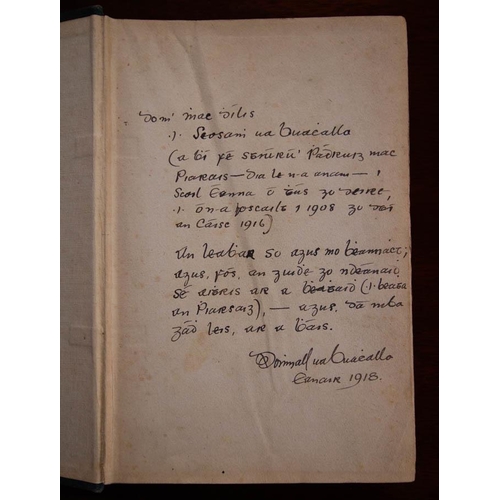 Dom' mac dílis
.i. Seosam ua buacalla
(a bí fé stiúrú' Pádruig mac
Piarais — dia le n-a anam — i
Scoil Éanna ó tús go deire,
.i. ón-a foscailt i 1908 go dtí
an Cáisc 1916)
An leabar so agus mo beannact;
agus, fós, an guide go ndéanaid
sé aitris ar a beataid (.i. beata
an Piarsaig), — agus, dá mba
gád leis, ar a bás.
Domnall ua buacalla
Eanair 1918.